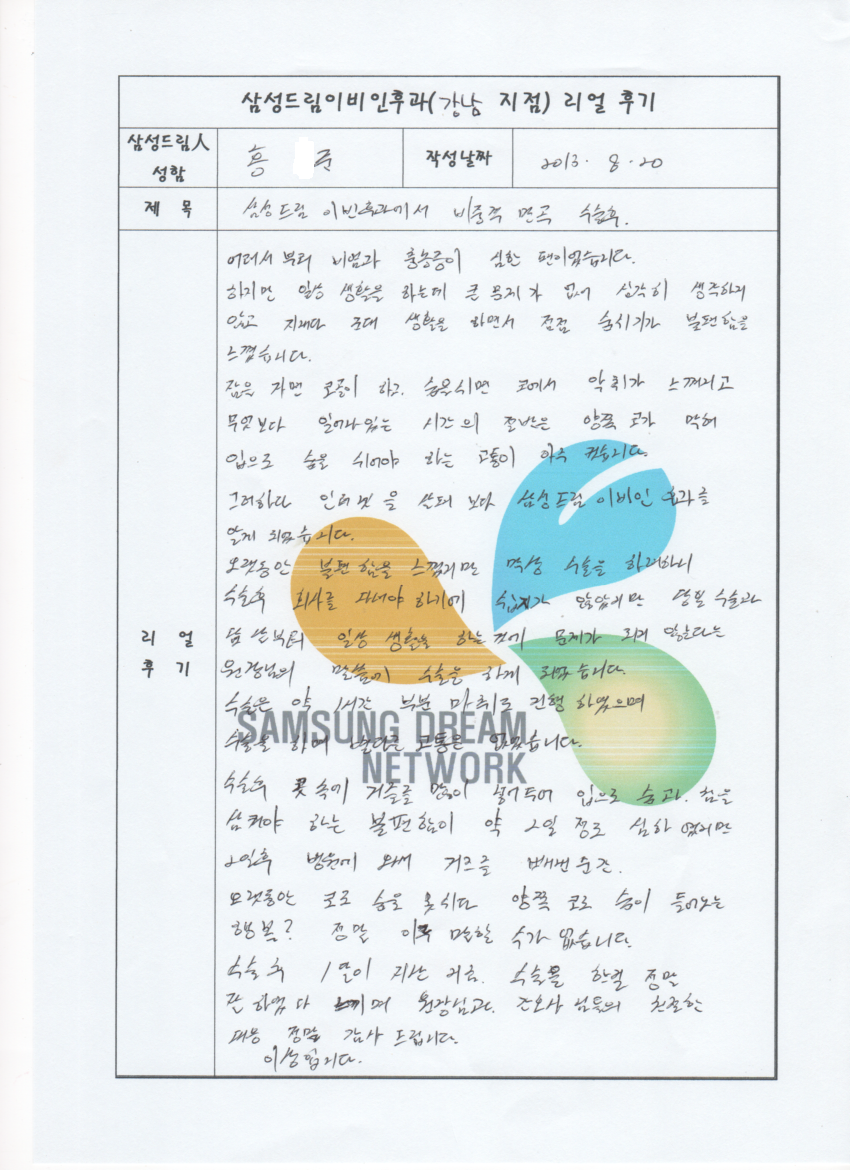 삼성드림이비인후과(강남 지점) 리얼 후기
삼성드림人 성함
홍 준
작성날짜
2013. 8. 20
제 목
삼성드림 이빈후과에서 비중격 만곡 수술후.
리 얼 후 기
어려서 부터 비염과 축농증이 심한 편이었습니다.
하지만 일상 생활을 하는데 큰 문제가 없어 심각히 생각하지
않고 지내다 군대 생활을 하면서 점점 숨쉬기가 불편함을
느꼈습니다.
잠을 자면 코골이 하고. 숨을쉬면 코에서 악취가 느껴지고
무엇보다 일어나있는 시간의 절반은 양쪽 코가 막혀
입으로 숨을 쉬어야 하는 고통이 아주 컸습니다.
그러하다 인터넷을 살펴 보다 삼성드림 이비인 후과를
알게 되었습니다.
오랫동안 불편함을 느꼈지만 막상 수술을 하려하니
수술후 회사를 다녀야 하기에 않았지만 수술과
일상 생활을 하는것에 문제가 되지 않는다는
원장님의 말씀에 수술을 하게 되었습니다.
수술은 약 1시간 부분 마취로 진행 하였으며
수술을 하며 별다른 고통은 없었습니다.
수술후 콧속에 거즈를 많이 넣어두어 입으로 숨과. 침을
삼켜야 하는 불편함이 약 2일 정도 심하였지만
2일후 병원에 와서 거즈를 빼낸순간.
오랫동안 코로 숨을 못쉬다 양쪽 코로 숨이 들어오는
행복? 정말 이루 말할 수가 없습니다.
수술후 1달이 지난 지금. 수술을 한걸 정말
잘 하였다 느끼며 원장님과. 간호사님들의 친절한
대응 정말 감사 드립니다.
이상입니다.
SAMSUNG DREAM
NETWORK